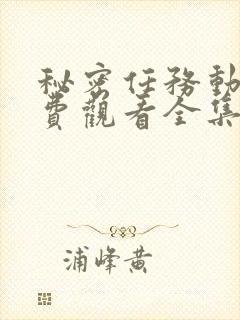 秘密任務動
費觀看全集
浦峰黄